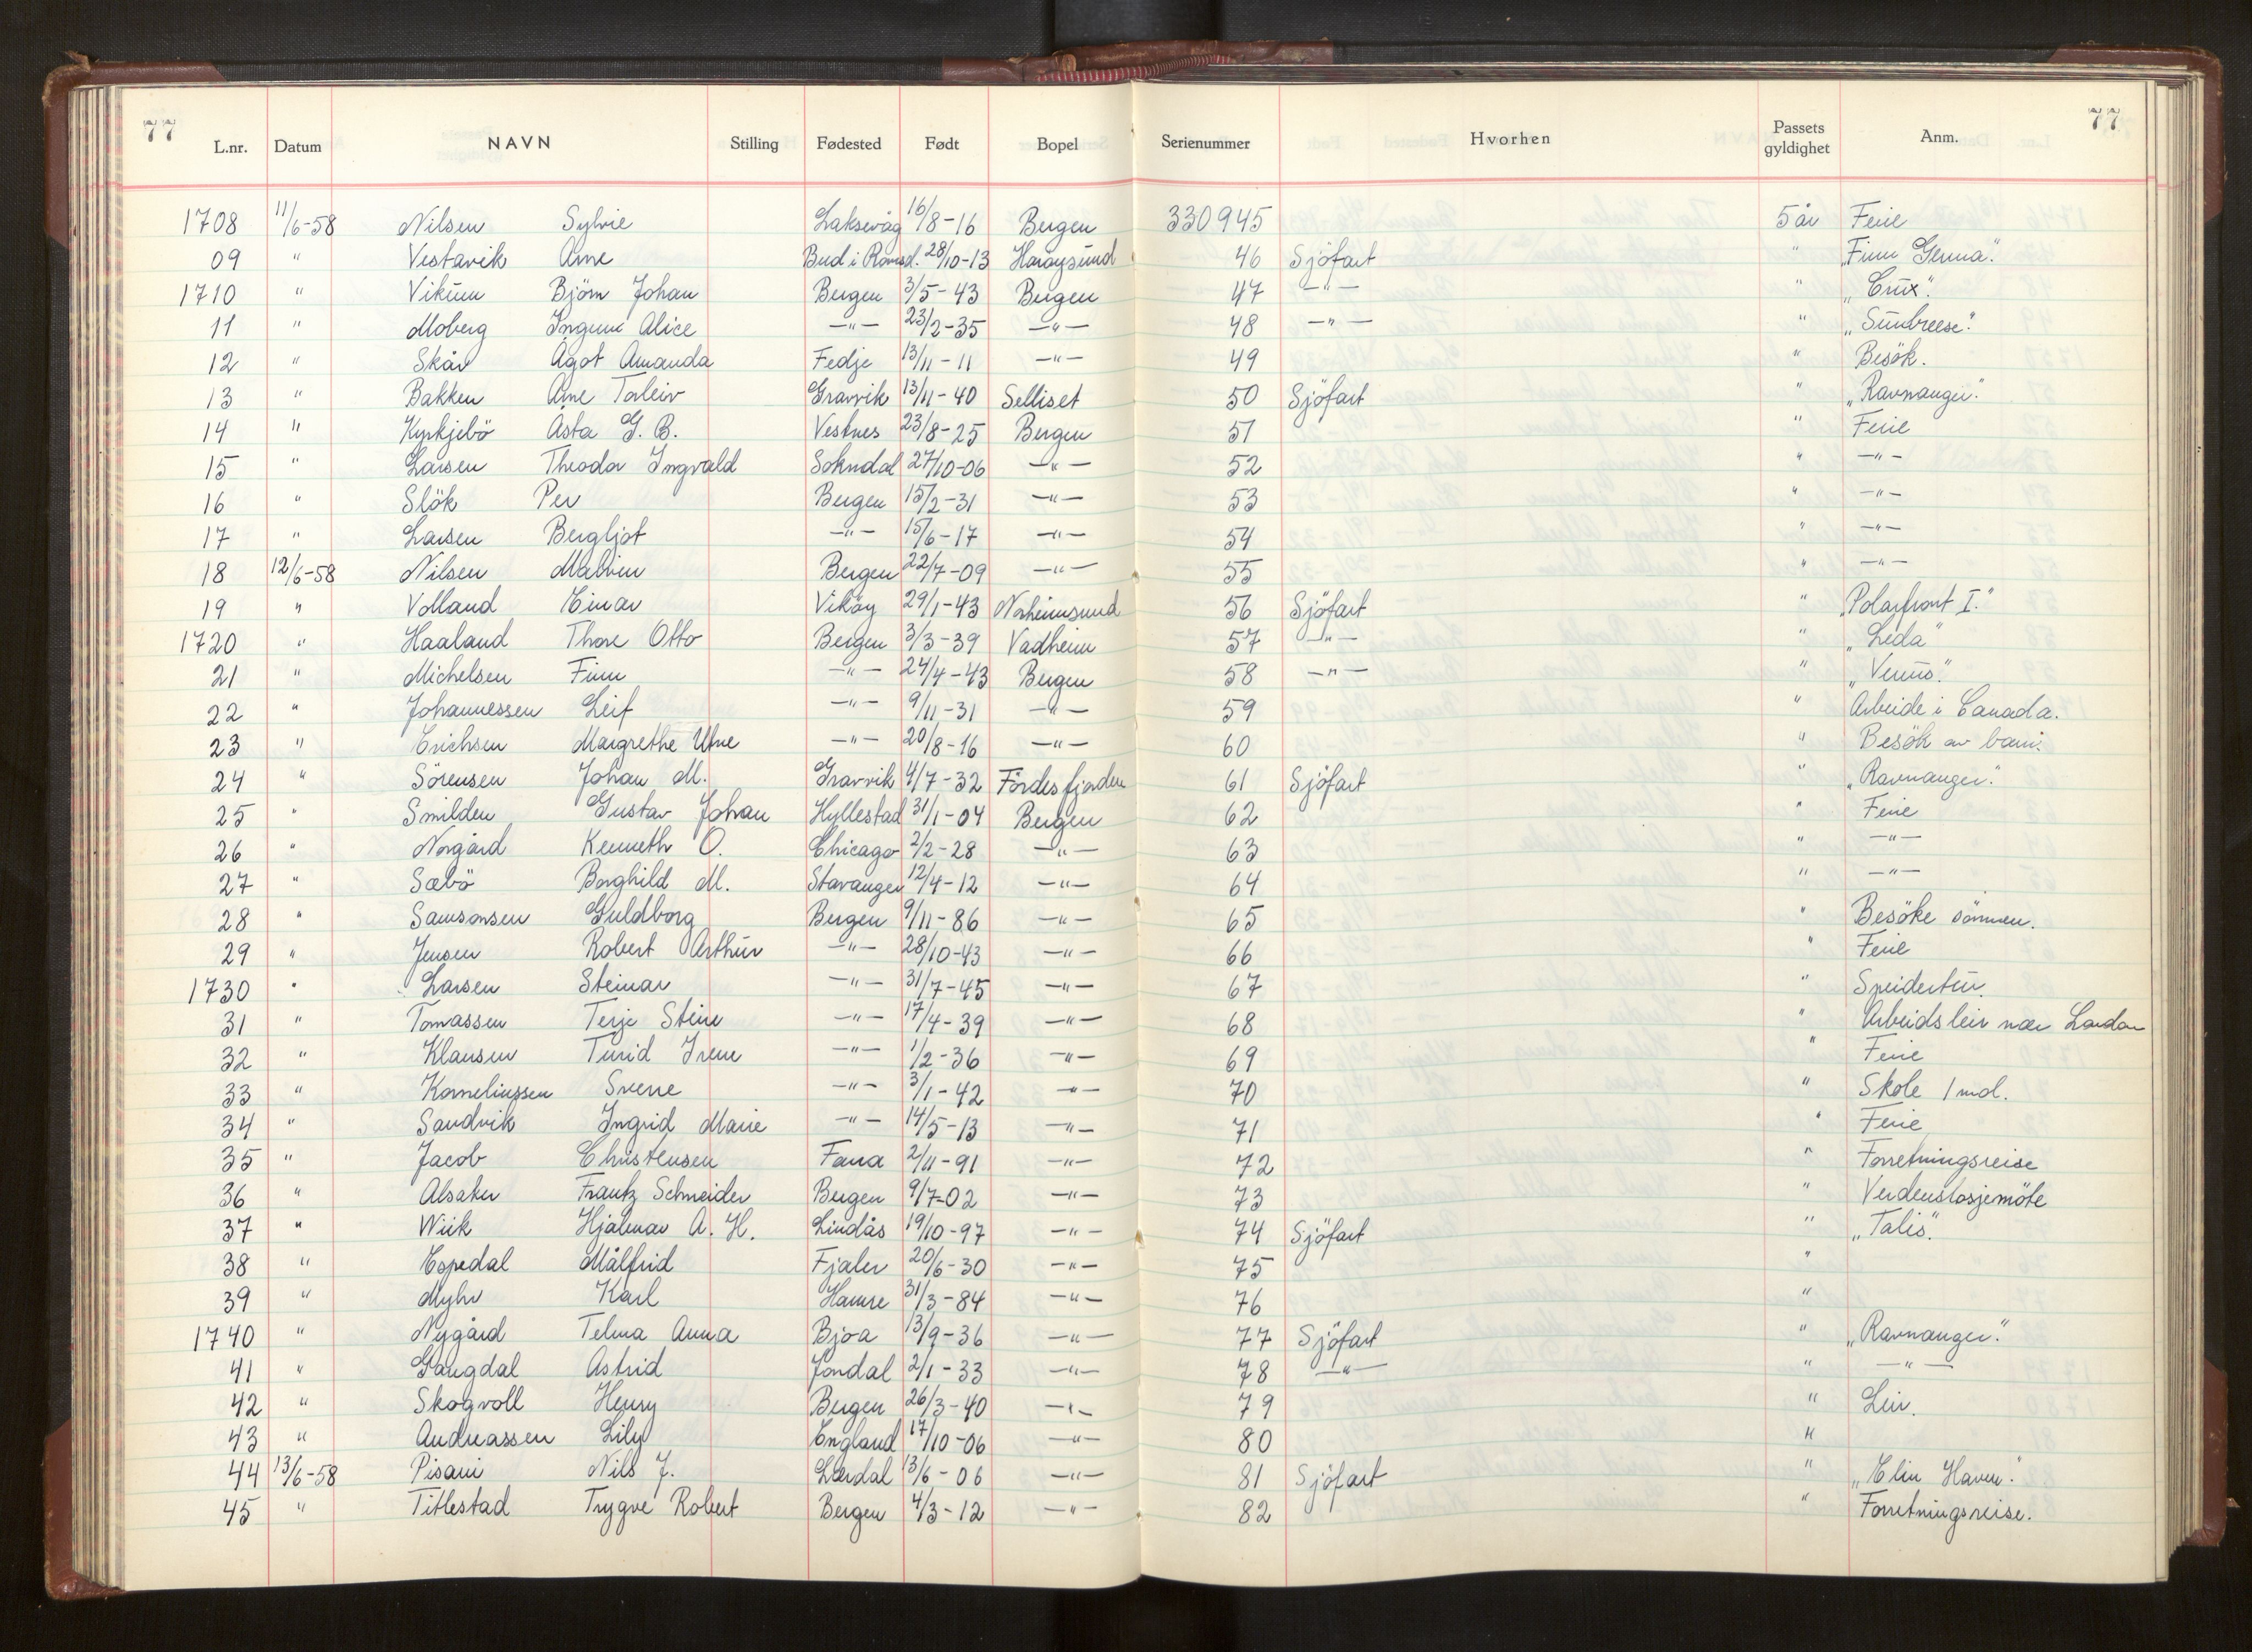 77 77
L.nr. Datum NAVN Stilling Fødested Født Bopel Serienummer Hvorhen Passets gyldighet Anm.
1708 11/6-58 Nilsen Sylvie Laksevåg 16/8-16 Bergen 330945 5 år Ferie
09 " Vestavik Arne Bud i Romsd. 28/10-13 Harøysund 46 Sjöfart " „Finn Gemma".
1710 " Vikum Björn Johan Bergen 3/5-43 Bergen 47 —"— " „Crux".
11 " Moberg Ingunn Alice —"— 23/2-35 —"— 48 —"— " „Sunbreese".
12 " Skår Ågot Amanda Fedje 13/11-11 —"— 49 " Besök.
13 " Bakken Arne Torleiv Gravvik 13/11-40 Selliset 50 Sjöfart " „Ravnanger".
14 " Kyrkjebö Åsta G. B. Vestnes 23/8-25 Bergen 51 " Ferie
15 " Larsen Theodor Ingvald Sokndal 27/10-06 —"— 52 " —"—
16 " Slök Per Bergen 15/2-31 —"— 53 " —"—
17 " Larsen Bergljot —"— 15/6-17 —"— 54 " —"—
18 12/6-58 Nilsen Malvin Bergen 22/7-09 —"— 55 " —"—
19 " Volland Einar Vikøy 29/1-43 Norheimsund 56 Sjöfart " „Polarfront I."
1720 " Haaland Thore Otto Bergen 3/3-39 Vadheim 57 —"— " „Leda"
21 " Michelsen Finn —"— 24/4-43 Bergen 58 —"— " „Venus".
22 " Johannessen Leif —"— 9/11-31 —"— 59 " Arbeide i Canada.
23 " Erichsen Margrethe Utne —"— 20/8-16 —"— 60 " Besök av barn.
24 " Sörensen Johan M. Gravvik 4/7-32 Fördesfjorden 61 Sjöfart " „Ravnanger".
25 " Smilden Gustav Johan Hyllestad 31/1-04 Bergen 62 " Ferie
26 " Norgård Kenneth O. Chicago 2/2-28 —"— 63 " —"—
27 " Sæbö Borghild M. Stavanger 12/4-12 —"— 64 " —"—
28 " Samsonsen Guldborg Bergen 9/11-86 —"— 65 " Besöke sönnen.
29 " Jensen Robert Arthur —"— 28/10-43 —"— 66 " Ferie
1730 " Larsen Steinar —"— 31/7-45 —"— 67 " Speidertur.
31 " Tomassen Terje Steine —"— 17/4-39 —"— 68 " Arbeidsleir nær London
32 " Klausen Turid Irene —"— 1/2-36 —"— 69 " Ferie
33 " Korneliussen Sverre —"— 3/1-42 —"— 70 " Skole 1 md.
34 " Sandvik Ingrid Marie —"— 14/5-13 —"— 71 " Ferie
35 " Jacob Christensen Fana 2/11-91 —"— 72 " Forretningsreise
36 " Alsaker Frantz Schneider Bergen 9/7-02 —"— 73 " Verdenslosjemöte
37 " Wiik Hjalmar A. H. Lindås 19/10-97 —"— 74 Sjöfart " „Talis".
38 " Espedal Målfrid Fjaler 20/6-30 —"— 75 "
39 " Myhr Karl Hamre 31/3-84 —"— 76 "
1740 " Nygård Telma Anna Bjoa 13/9-36 —"— 77 Sjöfart " „Ravnanger".
41 " Gangdal Astrid Jondal 2/1-33 —"— 78 —"— " —"—
42 " Skogvoll Henry Bergen 26/3-40 —"— 79 " Leir.
43 " Andreassen Lily England 17/10-06 —"— 80 "
44 13/6-58 Pisani Nils J. Lærdal 13/6-06 —"— 81 Sjöfart " „Elin Haven".
45 " Titlestad Trygve Robert Bergen 4/3-12 —"— 82 " Forretningsreise.